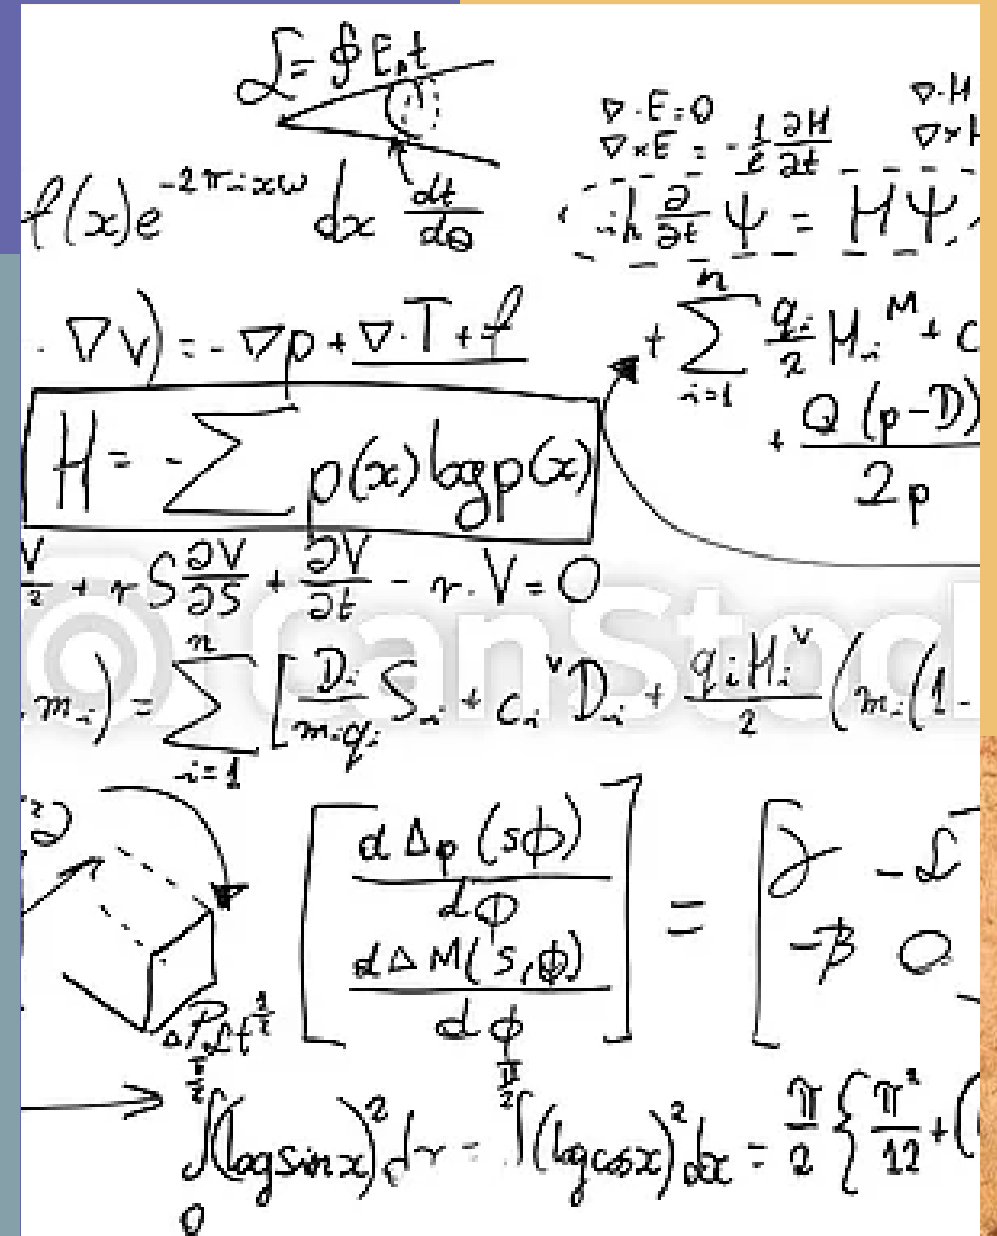 ℒ = ∮ E.t
∇·E = 0
∇×E = - 1/c ∂H/∂t
∇·H
∇×H
f(x)e^{-2πixω} dx dt/dθ
ih ∂/∂t Ψ = HΨ
·∇v) = -∇p + ∇·T + f
+ Σ_{i=1}^{n} q_i/2 H_i^M + c
+ Q(p-D)/2p
H = -Σ p(x) log p(x)
V/2 + rS ∂V/∂S + ∂V/∂t - r.V = 0
CanStoc
m_i) = Σ_{i=1}^{n} [D_i/(m_i q_i) S_i + c_i^v D_i + q_i H_i^v/2 (m_i(1-
[dΔp(sϕ)/dϕ
dΔM(s,ϕ)/dϕ] = [
-ℒ
-β 0
∫_0^{π/2} (log sinx)^2 dx = ∫^{π/2} (log cosx)^2 dx = π/2 {π^2/12 + (